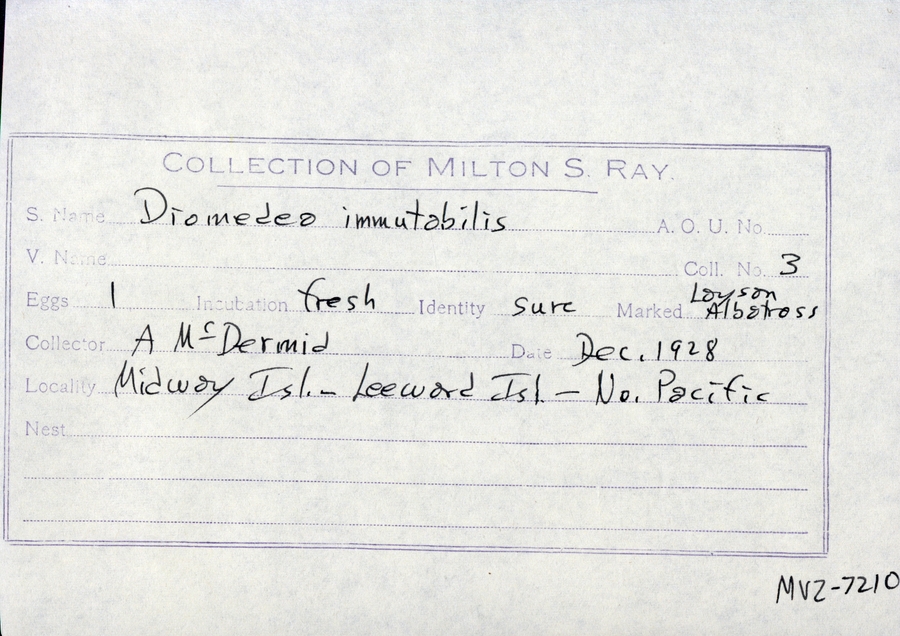 COLLECTION OF MILTON S. RAY.
S. Name Diomedea immutabilis A. O. U. No.
V. Name Coll. No. 3
Eggs 1 Incubation fresh Identity sure Marked Laysan Albatross
Collector A McDermid Date Dec. 1928
Locality Midway Isl. – Leeward Isl – No. Pacific
Nest
MVZ-7210